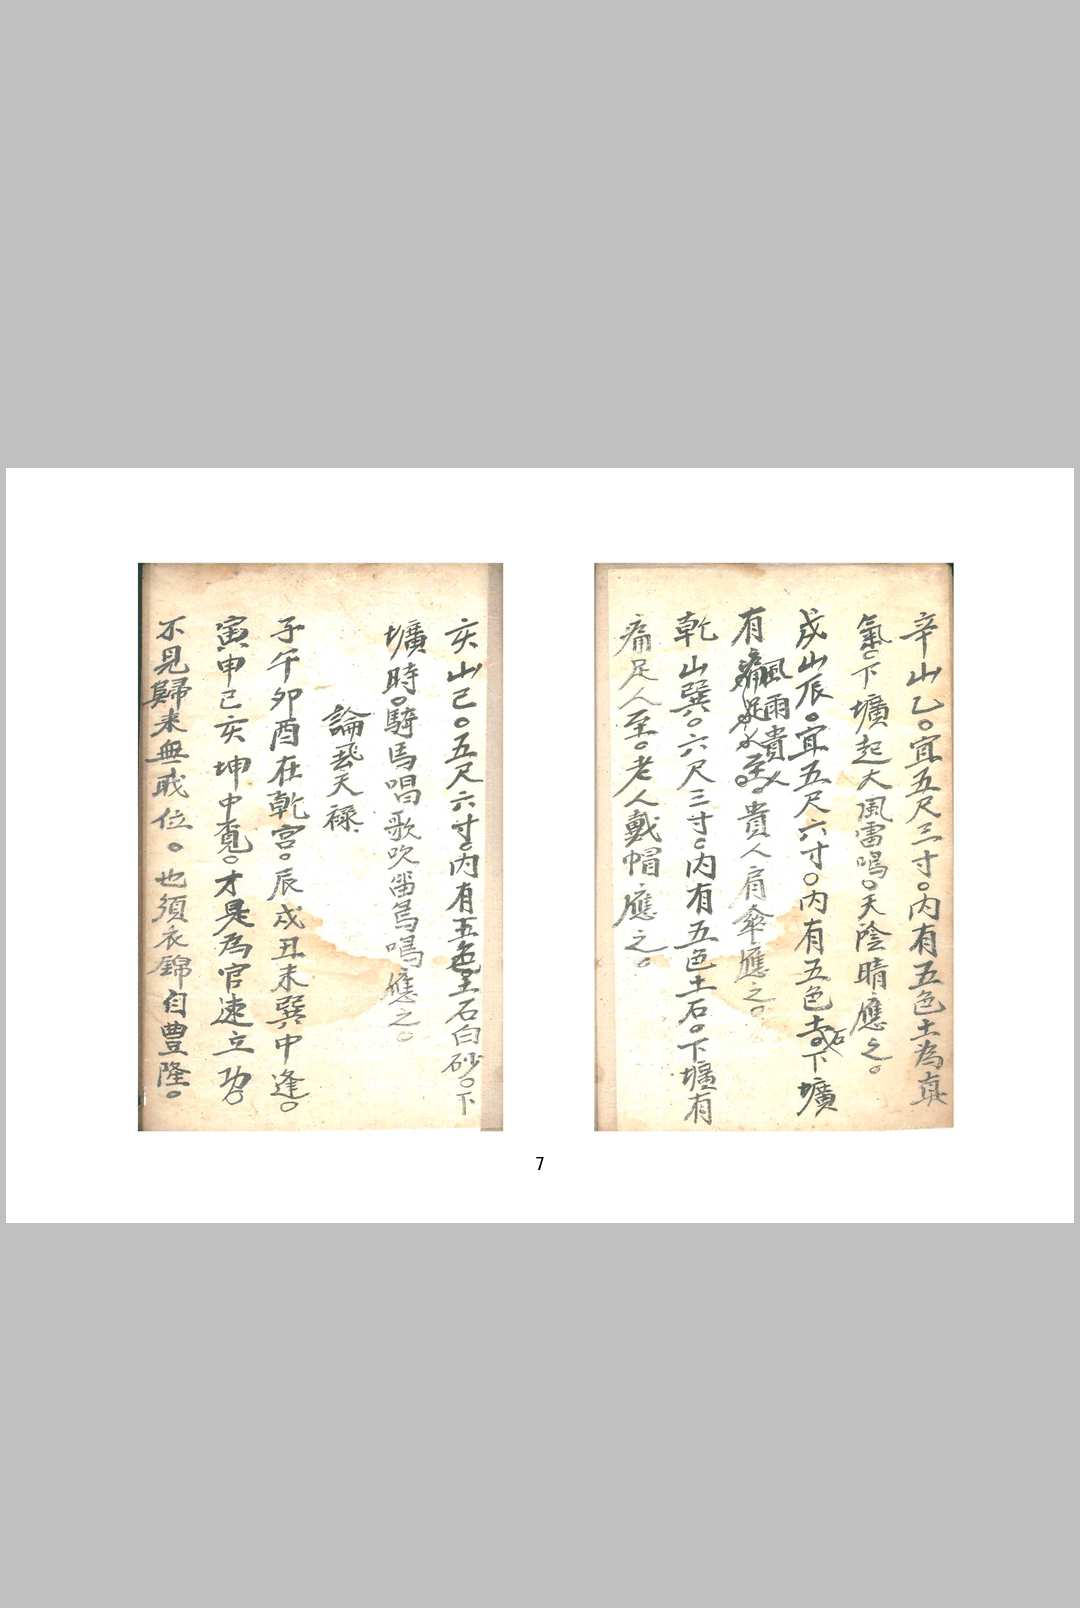 辛山乙。宜五尺三寸。内有五色土為真
氣。下壙起大風雷鳴。天陰晴應之。
戌山辰。宜五尺六寸。内有五色土石。下壙
有風雨貴人至。貴人肩傘應之。
乾山巽。六尺三寸。内有五色土石。下壙有
痛足人至。老人戴帽應之。
亥山已。五尺六寸。内有五色土石白砂。下
壙時。騎馬唱歌吹笛鳥鳴應之。
論飛天祿
子午卯酉在乾宮。辰戌丑未巽中逢。
寅申已亥坤中覓。才是為官速立功。
不見歸来無戝位。也須衣錦自豊隆。
7